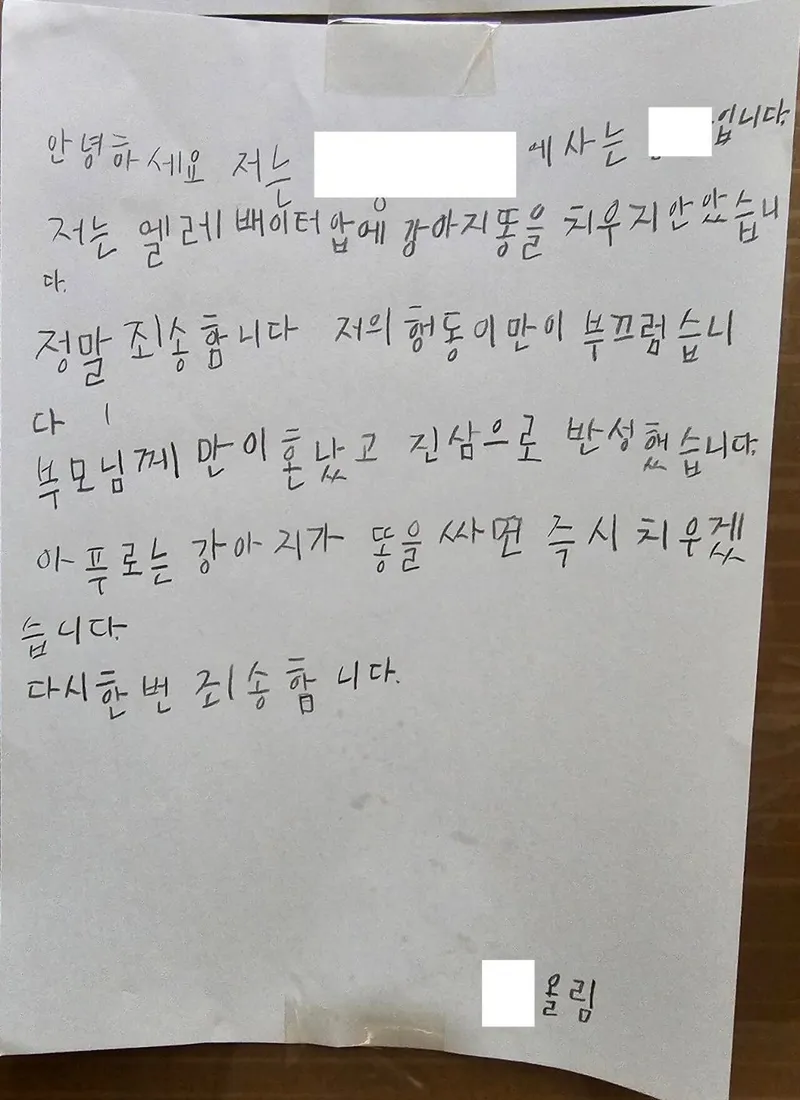 안녕하세요 저는 에 사는 입니다.
저는 엘레배이터 압에 강아지똥을 치우지안았습니
다.
정말 죄송합니다 저의 헹동이 만이 부끄럼습니
다
부모님께 만이 혼났고 진삼으로 반성했습니다.
아푸로는 강아지가 똥을 싸면 즉시 치우겠
습니다.
다시한번 죄송합니다.
올림